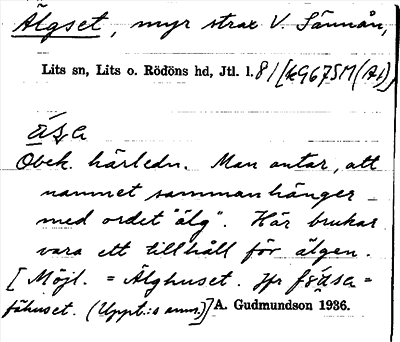 Älgset, myr strax V. Sännån,
Lits sn, Lits o. Rödöns hd, Jtl. l. 81
ása
Obek. härledn. Man antar, att
namnet sammanhänger
med ordet "älg". Här brukar
vara ett tillhåll för älgen.
[Möjl. = Älghuset. Jfr fǿása =
fähuset. (Uppt:s anm.)] A. Gudmundson 1936.